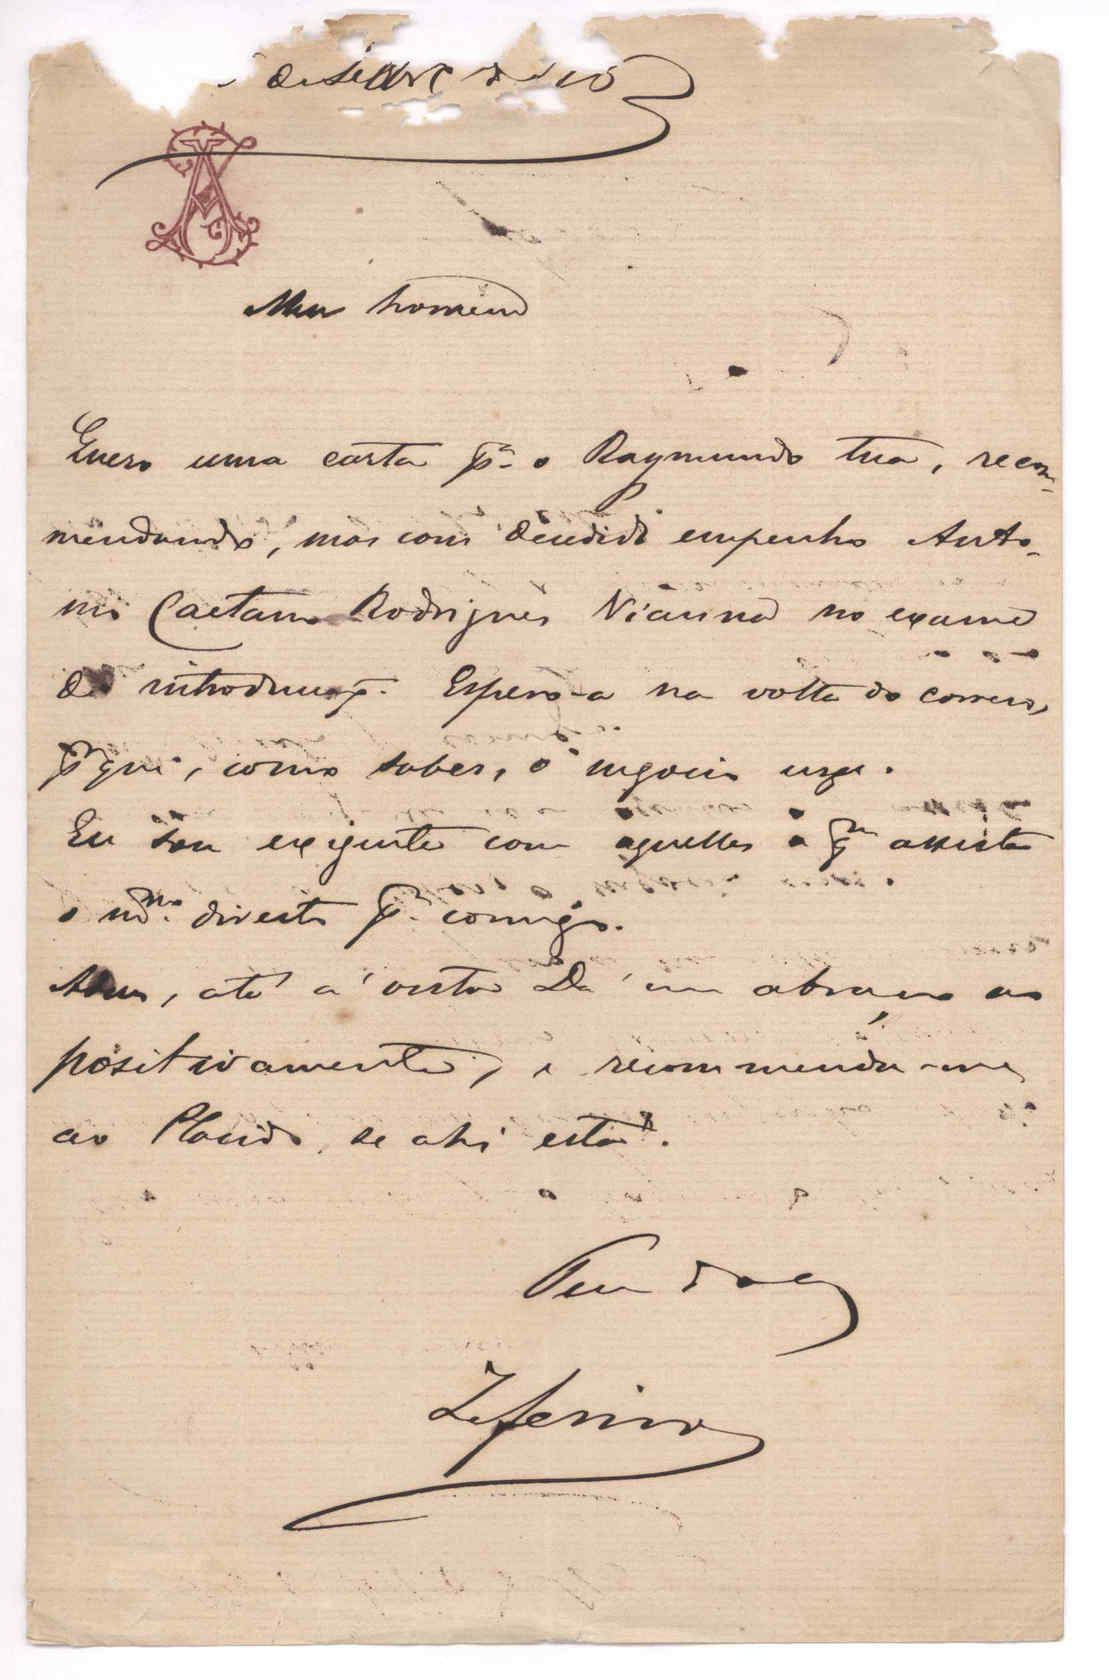 de
Meu homem
Quero uma carta pª o Raymundo tua, recom-
mendando, mas com decedido empenho Anto-
nio Caetano Rodrigues Vianna no exame
de introducç. Espero-a na volta do correio,
pr que, como sabes, o negocio urge.
Eu sou exigente com aquelles a qm assiste
o mmo direito pª comigo.
Adeus, até á vista Dá um abraço ao
positivamente, e recommenda-me
ao Placido, se ahi está.
Teu do C
Zeferino